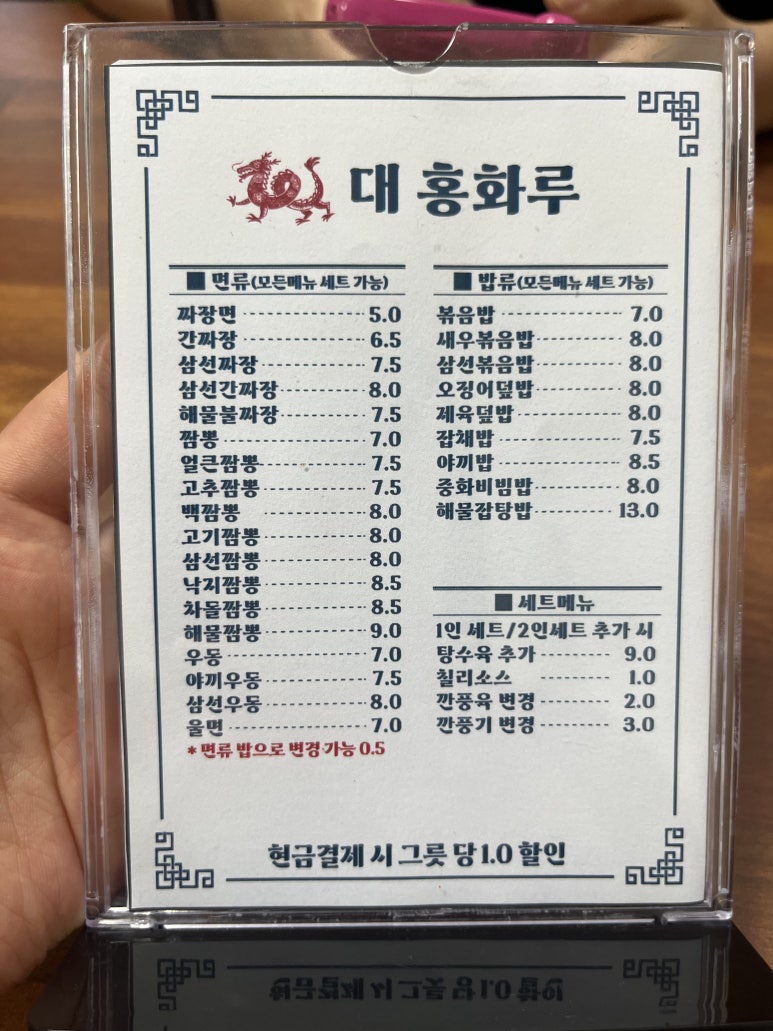 대 홍화루
■ 면류(모든메뉴 세트 가능)
짜장면 5.0
간짜장 6.5
삼선짜장 7.5
삼선간짜장 8.0
해물불짜장 7.5
짬뽕 7.0
얼큰짬뽕 7.5
고추짬뽕 7.5
백짬뽕 8.0
고기짬뽕 8.0
삼선짬뽕 8.0
낙지짬뽕 8.5
차돌짬뽕 8.5
해물짬뽕 9.0
우동 7.0
야끼우동 7.5
삼선우동 8.0
울면 7.0
* 면류 밥으로 변경 가능 0.5
■ 밥류(모든메뉴 세트 가능)
볶음밥 7.0
새우볶음밥 8.0
삼선볶음밥 8.0
오징어덮밥 8.0
제육덮밥 8.0
잡채밥 7.5
야끼밥 8.5
중화비빔밥 8.0
해물잡탕밥 13.0
■ 세트메뉴
1인 세트/2인세트 추가 시
탕수육 추가 9.0
칠리소스 1.0
깐풍육 변경 2.0
깐풍기 변경 3.0
현금결제 시 그릇 당 1.0 할인